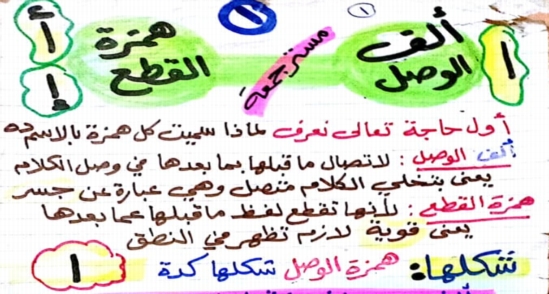 ١
١
ا
ألف الوصل
مستر جمعة
همزة القطع
أ
إ
أول حاجة تعالى نعرف لماذا سميت كل همزة بالاسم ده
ألف الوصل : لاتصال ما قبلها بما بعدها في وصل الكلام
يعنى بتخلي الكلام متصل وهي عبارة عن جسر
همزة القطع : لأنها تقطع لفظ ما قبلها عما بعدها
يعنى قوية لازم تظهر في النطق
شكلها: همزة الوصل شكلها كدة ا